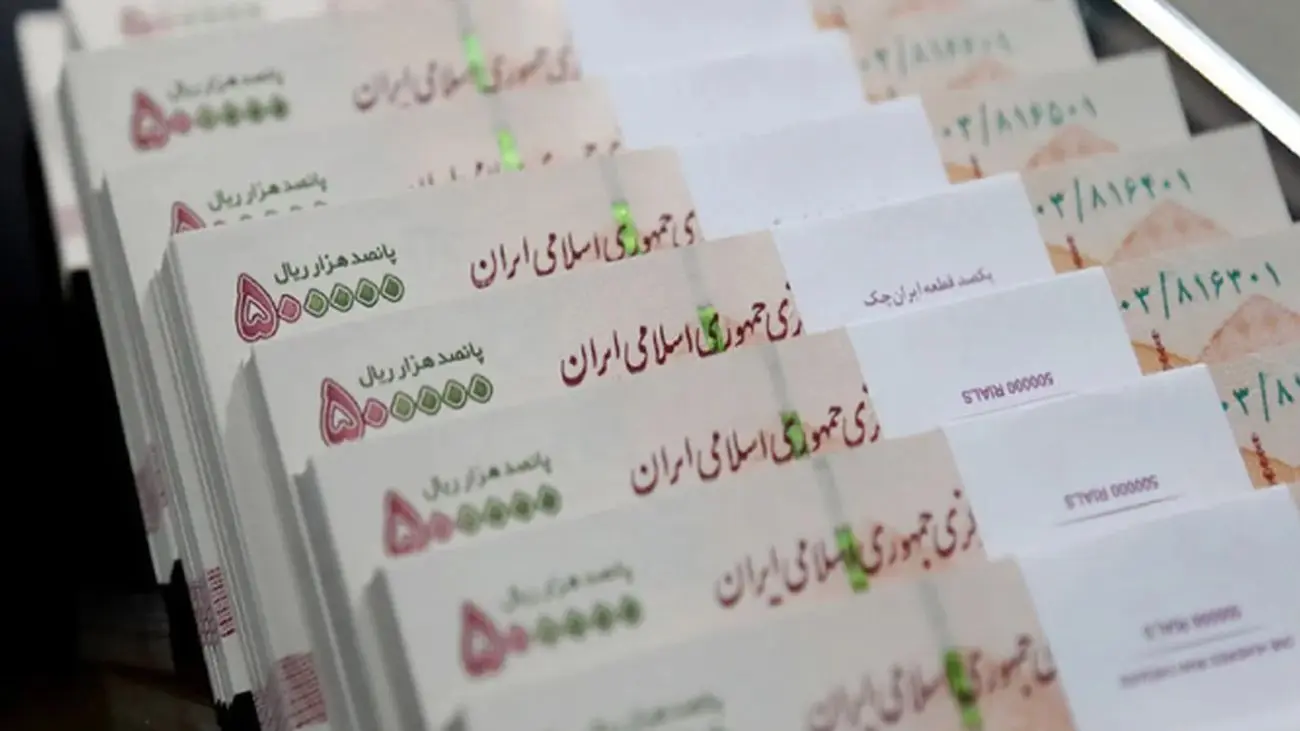 پانصد هزار ریال
۵۰۰۰۰۰
جمهوری اسلامی ایران
۰۳/۸۱۶۶۰۱
پانصد هزار ریال
۰۳/۸۱۶۵۰۱
پانصد هزار ریال
۵۰۰۰۰۰
ی جمهوری اسلامی ایران
۰۳/۸۱۶۴۰۱
پانصد هزار ریال
۵۰۰۰۰۰
زی جمهوری اسلامی ایران
یکصد قطعه ایران چک
۰۳/۸۱۶۳۰۱
پانصد هزار ریال
۵۰۰۰۰۰
زی جمهوری اسلامی ایران
500000 RIALS
۰۳/۸
پانصد هزار ریال
۵۰۰۰۰۰
زی جمهوری اسلامی ایران
500000 RIALS
جمهوری اسلامی ایران
500000 RIALS